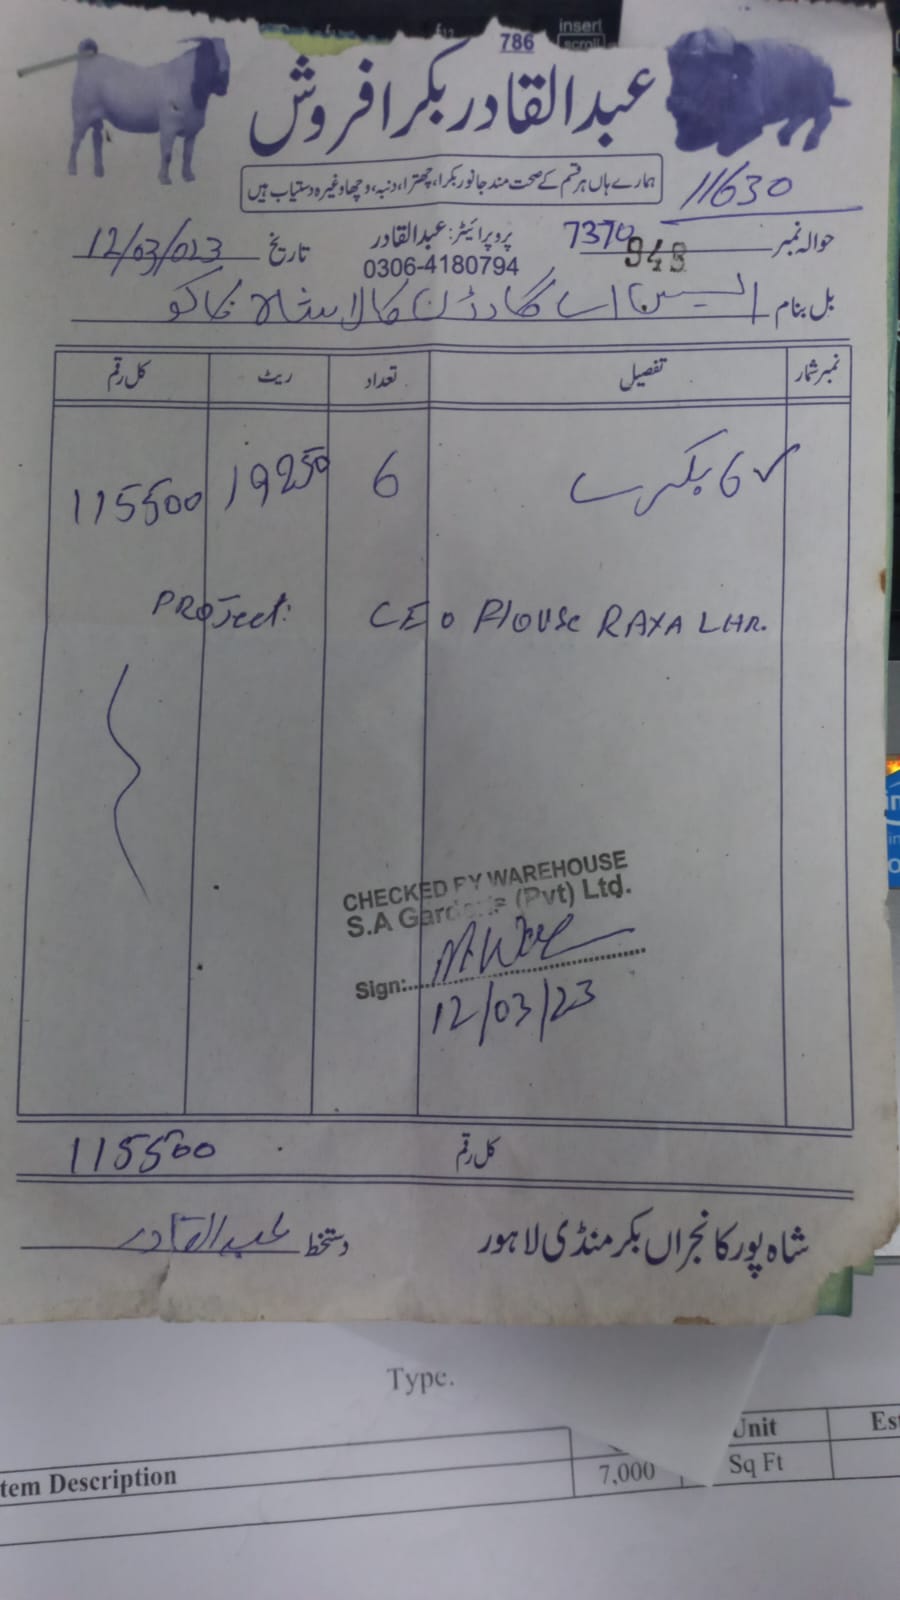 insert
scroll
786
عبدالقادر بکرا فروش
ہمارے ہاں ہر قسم کے صحت مند جانور بکرا، چھترا، دنبہ، وچھا وغیرہ دستیاب ہیں
11630
حوالہ نمبر 7370 948
پروپرائیٹر: عبدالقادر
0306-4180794
تاریخ 12/03/023
بل بنام ایس اے گارڈن کالا شاہ کاکو
نمبر شمار تفصیل تعداد ریٹ کل رقم
6 بکرے 6 19250 115500
Project: CEO House RAYA LHR.
CHECKED BY WAREHOUSE
S.A Gardens (Pvt) Ltd.
Sign:
12/03/23
کل رقم 115500
شاہ پور کانجراں بکر منڈی لاہور
دستخط عبدالقادر
Type.
tem Description Unit Es
7,000 Sq Ft